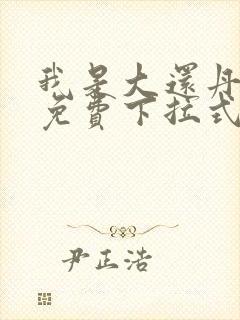 我是大還丹
免費下拉式
尹正浩